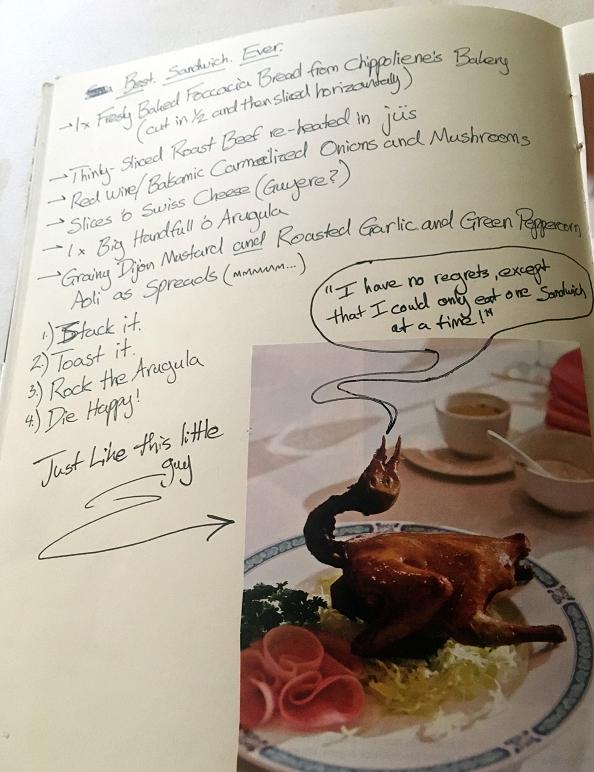 Best. Sandwich. Ever.
→ 1x Freshly Baked Foccacia Bread from Chippoliene's Bakery
(cut in 1/2 and then sliced horizontally)
→ Thinly-Sliced Roast Beef re-heated in jüs
→ Red Wire/Balsamic Carmelized Onions and Mushrooms
→ Slices o Swiss Cheese (Guyere?)
→ 1x Big Handfull o Arugula
→ Grainy Dijon Mustard and Roasted Garlic and Green Peppercorn
Aoli as Spreads (mmmmm...)
1.) Stack it.
2.) Toast it.
3.) Rock the Arugula
4.) Die Happy!
Just Like this little
guy
"I have no regrets, except
that I could only eat one Sandwich
at a time!"